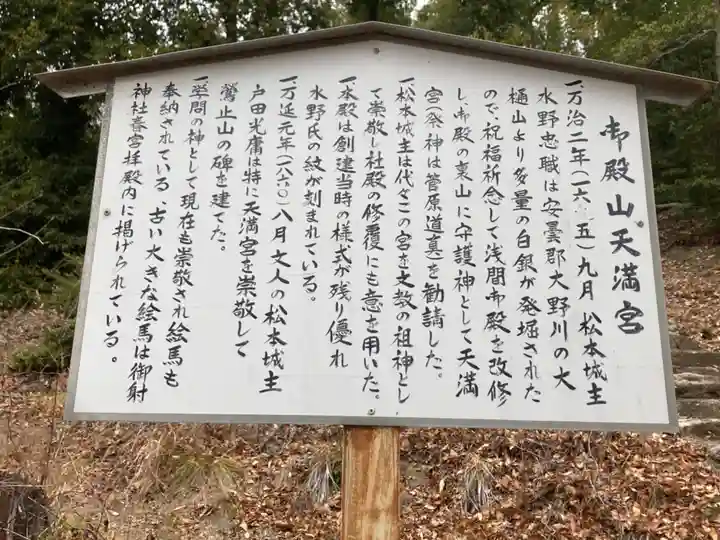 御殿山天満宮
一、万治二年(一六五五)九月 松本城主
水野忠職は安曇郡大野川の大
樋山より多量の白銀が発掘された
ので、祝福祈念して浅間御殿を改修
し、御殿の裏山に守護神として天満
宮(祭神は菅原道真)を勧請した。
一、松本城主は代々この宮を文教の祖神とし
て崇敬し社殿の修覆にも意を用いた。
一、本殿は創建当時の様式が残り優れ
水野氏の紋が刻まれている。
一、万延元年(一八六〇)八月文人の松本城主
戸田光庸は特に天満宮を崇敬して
鶯止山の碑を建てた。
一、学問の神として現在も崇敬され絵馬も
奉納されている、古い大きな絵馬は御射
神社春宮拝殿内に掲げられている。